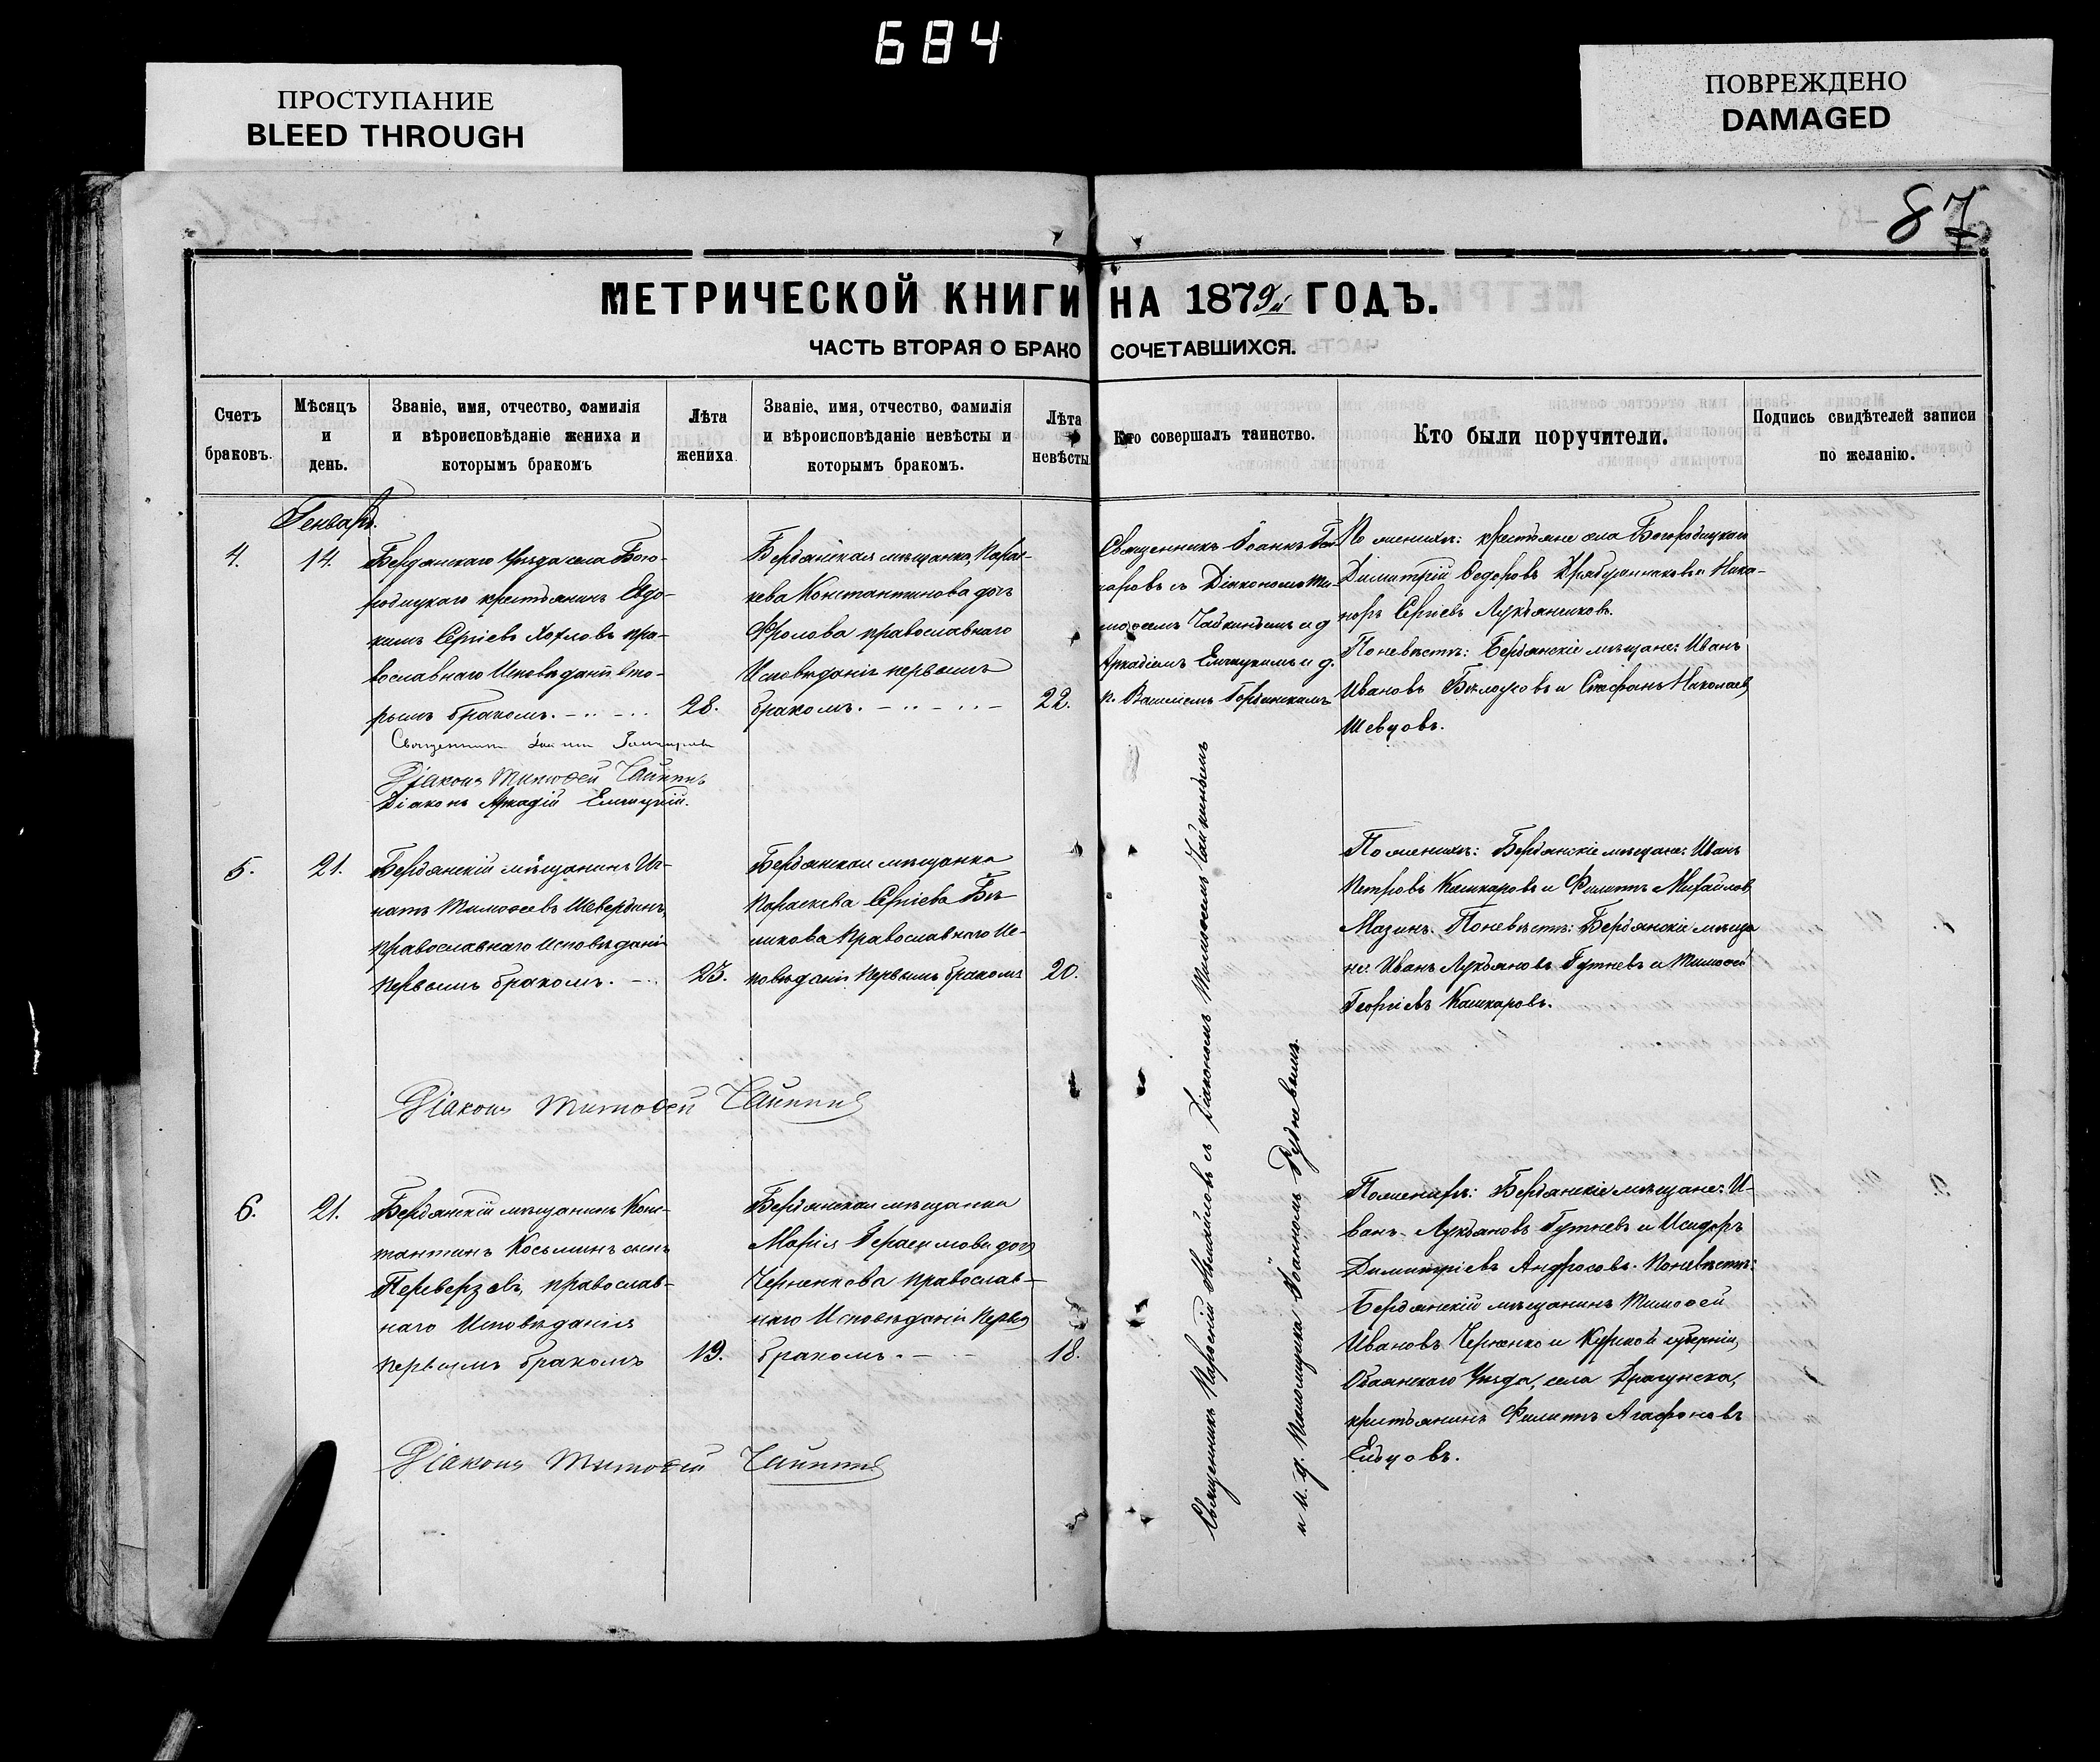 684
ПРОСТУПАНИЕ
BLEED THROUGH
ПОВРЕЖДЕНО
DAMAGED
87
МЕТРИЧЕСКОЙ КНИГИ НА 1879й ГОДЪ.
ЧАСТЬ ВТОРАЯ О БРАКОСОЧЕТАВШИХСЯ.
Счетъ
браковъ.
Мѣсяцъ
и
день.
Званіе, имя, отчество, фамилія
и вѣроисповѣданіе жениха и
которымъ бракомъ
Лѣта
жениха
Званіе, имя, отчество, фамилія
и вѣроисповѣданіе невѣсты и
которымъ бракомъ.
Лѣта
невѣсты
Кто совершалъ таинство.
Кто были поручители.
Подпись свидѣтелей записи
по желанію.
Генварь.
4.
14.
Бердянскаго Уѣзда села Бого-
родицкаго крестьянинъ Евдо-
кимъ Сергіевъ Хохловъ пра-
вославнаго Исповѣданія вто-
рымъ бракомъ.
28.
Бердянская мѣщанка, Парас-
кева Константинова дочь
Фролова православнаго
Исповѣданія первымъ
бракомъ.
22.
Священникъ Іоаннъ
съ Діакономъ Ти-
мофеемъ Чайкинымъ и д
Аркадіемъ и д.
п.
По женихѣ: крестьяне села Богородицкаго
Димитрій Федоровъ и Ника-
норъ Сергіевъ Лукьянчиковъ.
По невѣстѣ: Бердянскіе мѣщане: Иванъ
Ивановъ и Стефанъ Николаевъ
Шевцовъ.
Священникъ
Діаконъ Тимофей Чайкинъ
Діаконъ Аркадій
5.
21.
Бердянскій мѣщанинъ Иг-
натъ Тимофеевъ Шевердинъ,
православнаго исповѣданія
первымъ бракомъ.
23.
Бердянская мѣщанка
Параскева Сергіева Бѣ-
ликова Православнаго Ис-
повѣданія первымъ бракомъ
20.
По женихѣ: Бердянскіе мѣщане: Иванъ
Петровъ Кашкаровъ и Филиппъ Михайловъ
Мазинъ. По невѣстѣ: Бердянскіе мѣща
не: Иванъ Лукьяновъ Гутневъ и Тимофей
Георгіевъ Кашкаровъ.
Діаконъ Тимофей Чайкинъ
6.
21.
Бердянскій мѣщанинъ Конс-
тантинъ Косьминъ сынъ
Переверзевъ, православ-
наго Исповѣданія
первымъ бракомъ
19.
Бердянская мѣщанка
Марія Герасимова дочь
Черненкова православ-
наго Исповѣданія Первы
бракомъ.
18.
По женихѣ: Бердянскіе мѣщане: И-
ванъ Лукьяновъ Гутневъ и Исидоръ
Димитріевъ Андросовъ. По невѣстѣ:
Бердянскій мѣщанинъ Тимофей
Ивановъ Черненко и Курской губерніи,
Обоянскаго Уѣзда, села Драгунска,
крестьянинъ Филиппъ Агафоновъ
Ельцовъ.
Діаконъ Тимофей Чайкинъ
Священникъ Михайловъ съ Діакономъ Тимофеемъ Чайкинымъ
и и. д. Псаломщика Іоанномъ Рудневымъ.